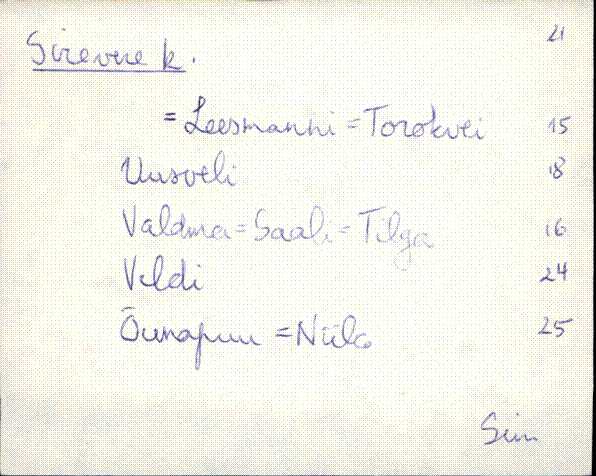 21
Sirevere k.
= Leesmanni = Torokvei 15
Uusveli 18
Valdma = Saali = Tilga 16
Veldi 24
Õunapuu = Niilo 25